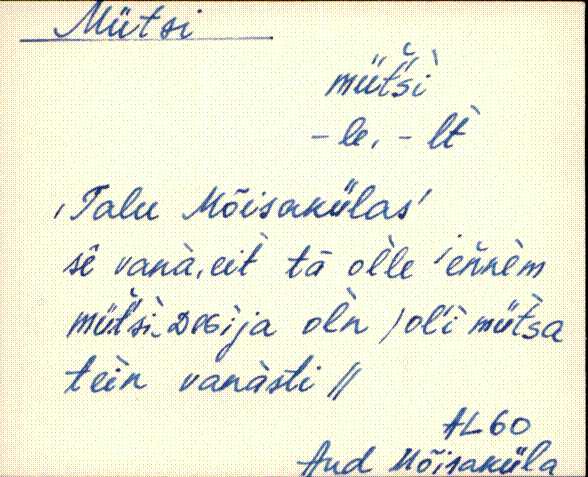 Mütsi
müt́šì
-le, -lt̀
'Talu Mõisakülas'
sê vanà, eit̀ tā ol̀le 'eǹnèm
müt́šì_DEGìja ol̀n / ol'ì müt̀sa
teìn vanàsti //
AL 60
Aud Mõisaküla